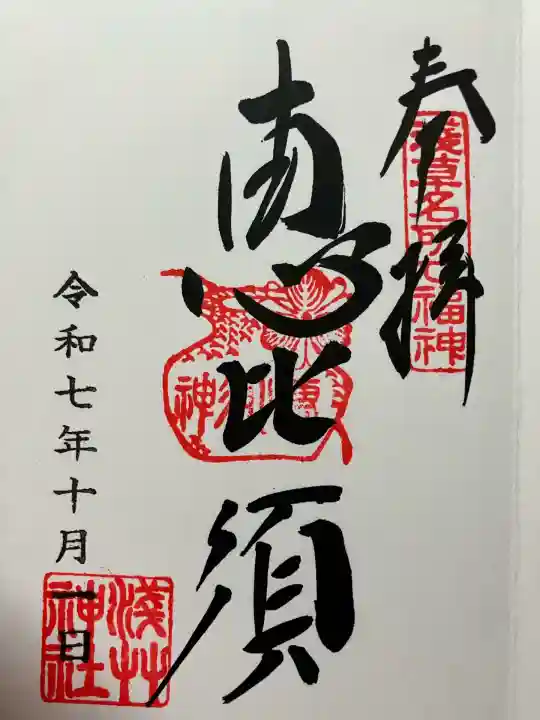 奉拝
浅草名所七福神
恵比須
神
令和七年十月一日
浅草
神社